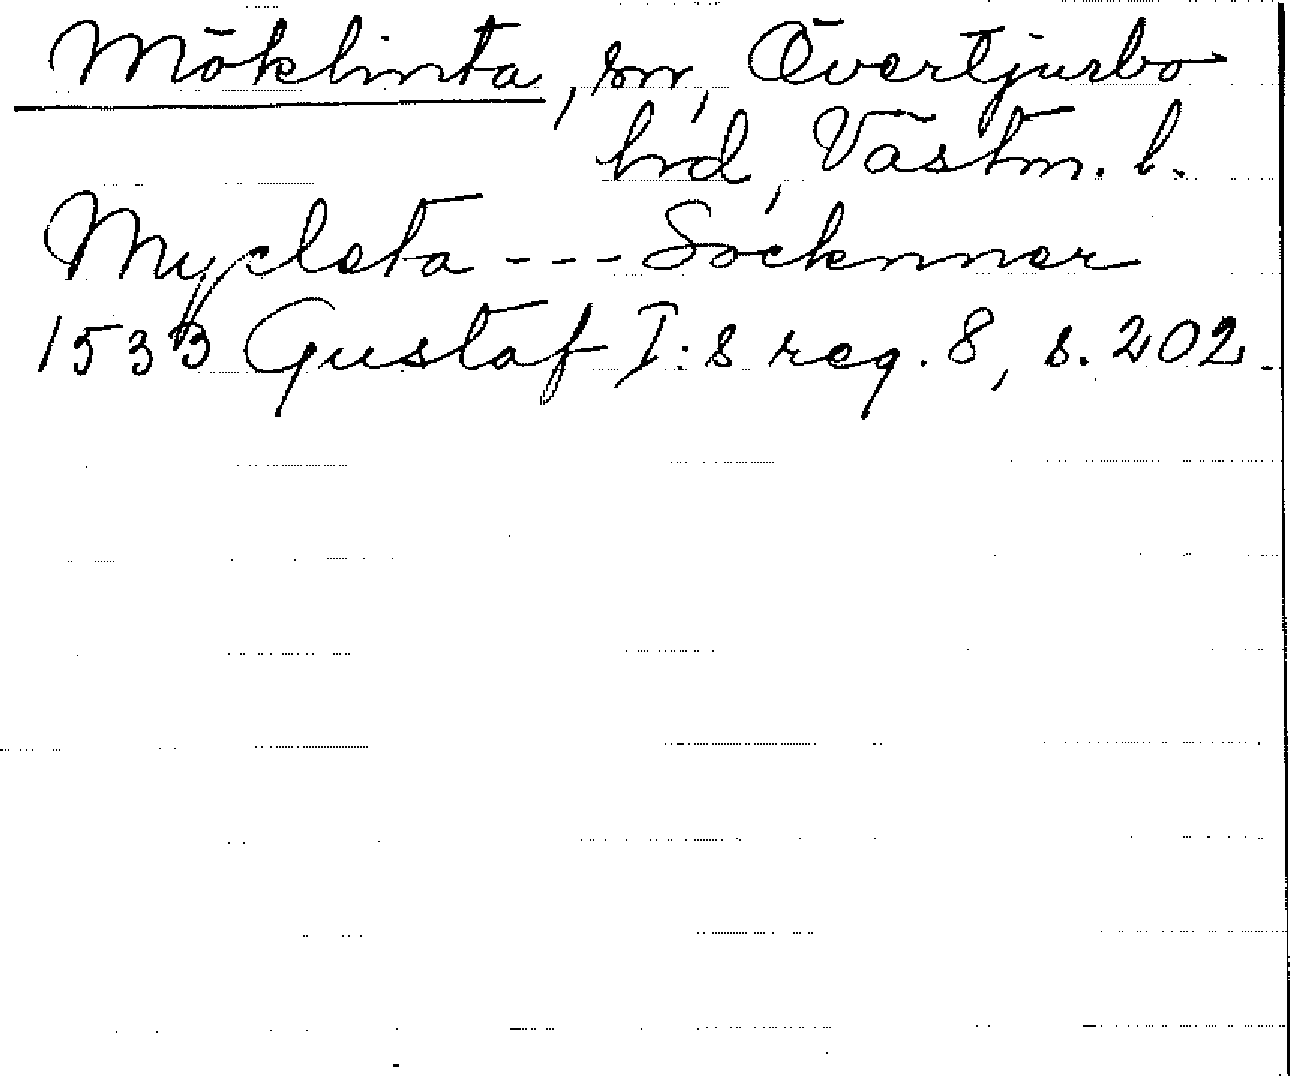 Möklinta, sn, Övertjurbo
hrd, Västm. l.
Mycleta --- Socknner
1533 Gustaf I:s reg. 8, s. 202.